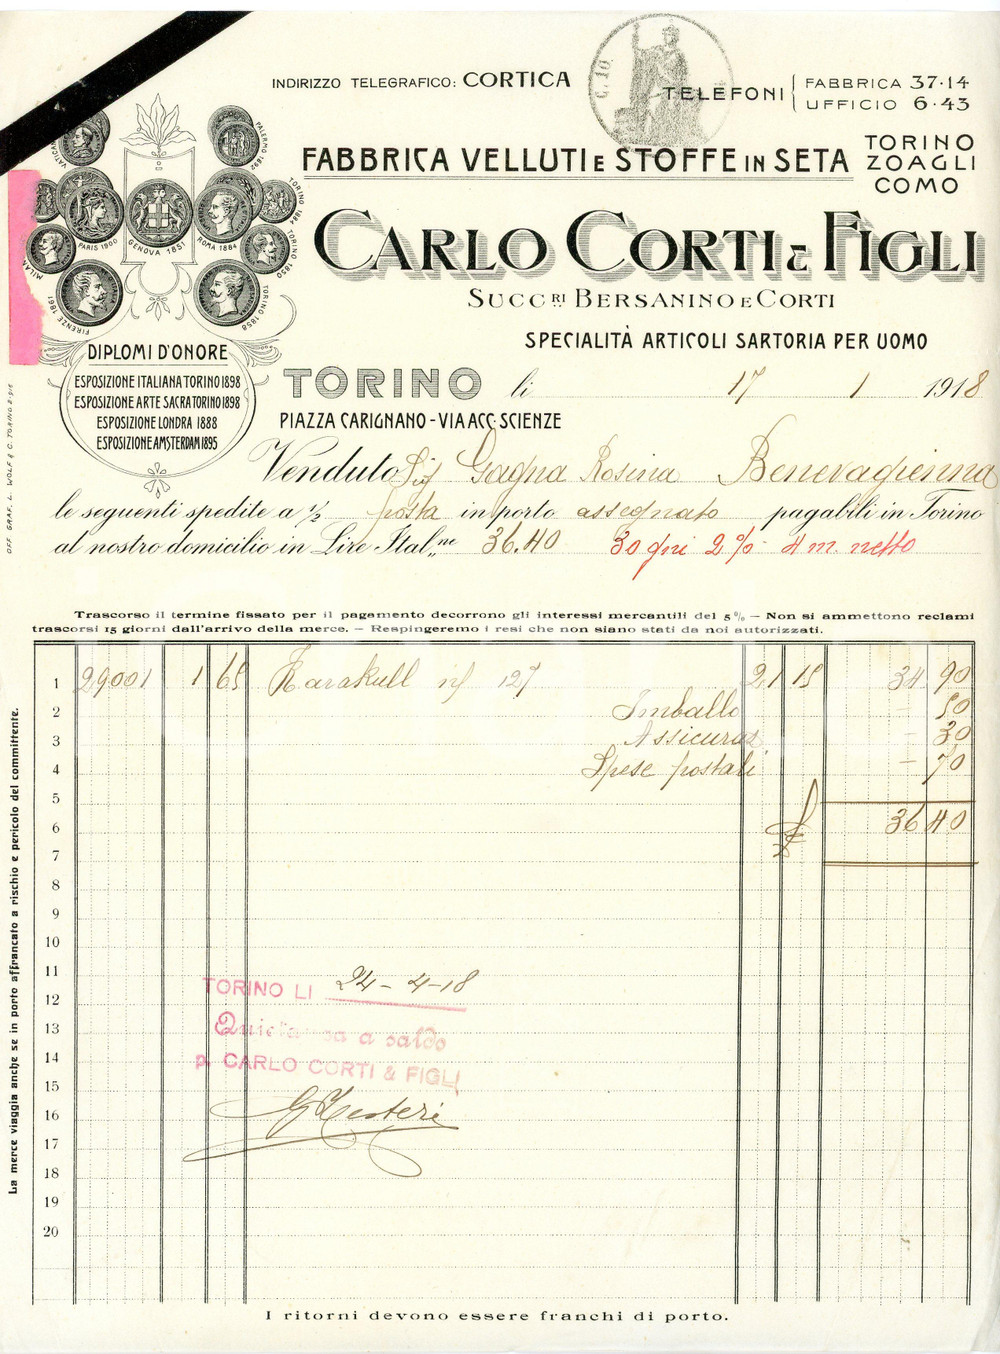 INDIRIZZO TELEGRAFICO: CORTICA
C. 10
TELEFONI
FABBRICA 37·14
UFFICIO 6·43
FABBRICA VELLUTI E STOFFE IN SETA
TORINO
ZOAGLI
COMO
CARLO CORTI & FIGLI
SUCC.RI BERSANINO E CORTI
SPECIALITÀ ARTICOLI SARTORIA PER UOMO
PALERMO 1892
TORINO 1884
PARIS 1900
GENOVA 1851
ROMA 1884
MILAN
FIRENZE 1861
TORINO 1858
DIPLOMI D'ONORE
ESPOSIZIONE ITALIANA TORINO 1898
ESPOSIZIONE ARTE SACRA TORINO 1898
ESPOSIZIONE LONDRA 1888
ESPOSIZIONE AMSTERDAM 1895
TORINO li 17 1 1918
PIAZZA CARIGNANO - VIA ACC. SCIENZE
Venduto Sig Gagna Rosina Benevagienna
le seguenti spedite a ½ posta in porto assegnato pagabili in Torino
al nostro domicilio in Lire Ital.ne 36.40 30 gni 2% 4 m. netto
OFF. GRAF. L. WOLF & C. TORINO
Trascorso il termine fissato per il pagamento decorrono gli interessi mercantili del 5 % — Non si ammettono reclami
trascorsi 15 giorni dall'arrivo della merce. — Respingeremo i resi che non siano stati da noi autorizzati.
1 29001 1 65 Karakull n/ 127 21 15 34 90
2 Imballo - 50
3 Assicuraz. - 30
4 Spese postali - 70
5
6 36 40
7
8
9
10
11
12
13
14
15
16
17
18
19
20
TORINO LI 24-4-18
Quietanza a saldo
p. CARLO CORTI & FIGLI
La merce viaggia anche se in porto affrancato a rischio e pericolo del committente.
I ritorni devono essere franchi di porto.